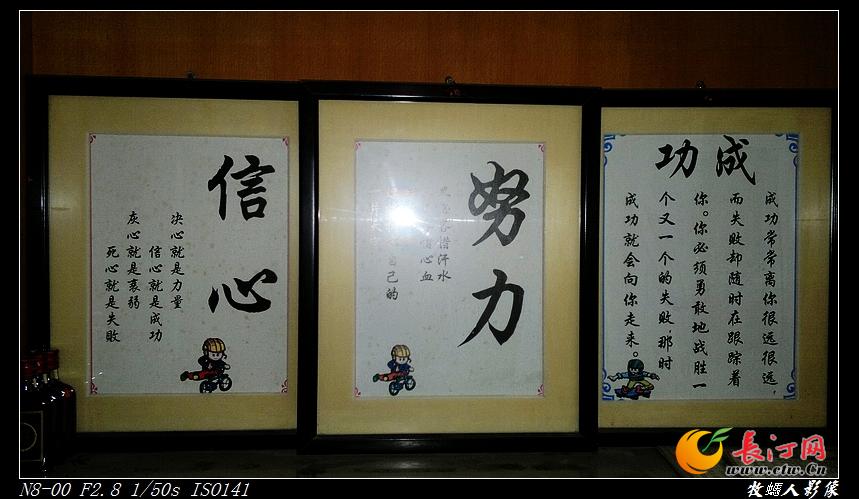 信心
决心就是力量
信心就是成功
灰心就是衰弱
死心就是失败
努力
惜汗水
心血
自己的
成功
成功常常离你很远很远,
而失败却随时在跟踪着
你。你必须勇敢地战胜一
个又一个的失败,那时
成功就会向你走来。
长汀网
www.ctw.cn
N8-00 F2.8 1/50s ISO141
人影像